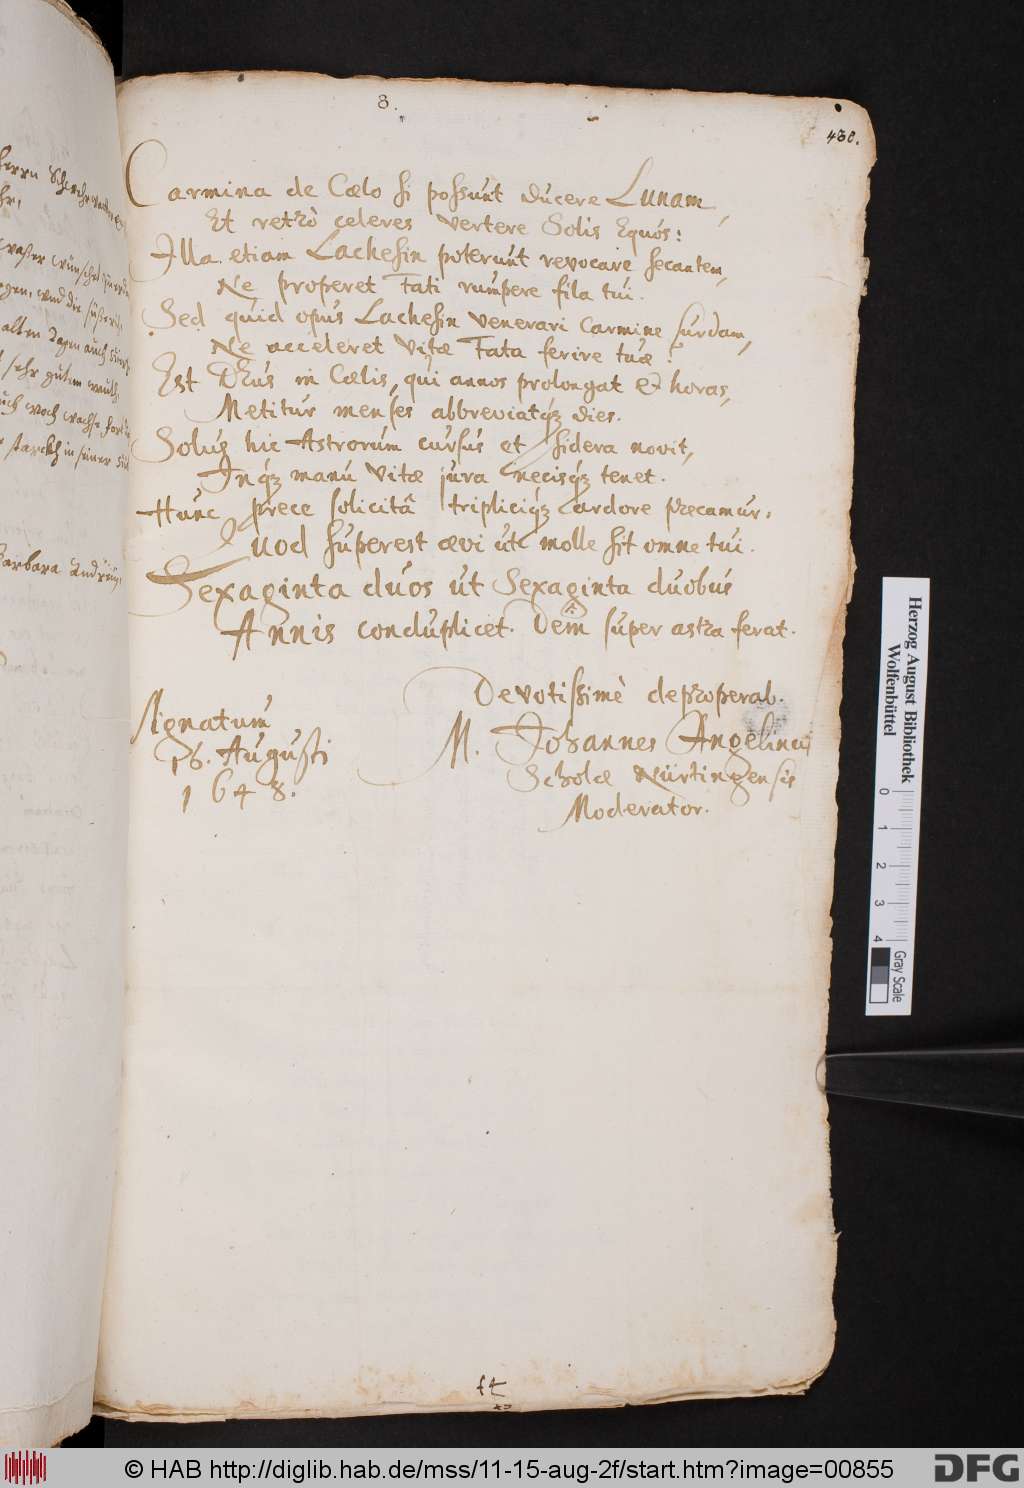 8.
430.
Carmina de Cælo si possunt ducere Lunam,
Et retrò celeres vertere Solis Equos:
Illa etiam Lachesin poterunt revocare secantem,
Ne properet Fati rumpere fila tui.
Sed quid opus Lachesin venerari carmine surdam,
Ne acceleret vitæ Fata ferire tuæ?
Est Deus in Cælis, qui annos prolongat et horas,
Metitur menses abbreviatqz dies.
Solus hic Astrorum cursus et sidera novit,
Inqz manu vitæ jura necisqz tenet.
Hunc prece solicitâ tripliciqz ardore præcamur,
Quod superest ævi ut molle sit omne tui.
Sexaginta duos ut Sexaginta duobus
Annis conduplicet. Dein super astra ferat.
Devotissimè deproperab.
M. Johannes Angelinus
Scholæ Nürtingensis
Moderator.
Signatum
16. Augusti
1648.
Barbara
Herzog August Bibliothek
Wolfenbüttel
0 1 2 3 4
Gray Scale
© HAB http://diglib.hab.de/mss/11-15-aug-2f/start.htm?image=00855
DFG